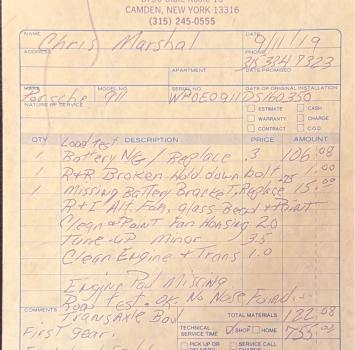 CAMDEN, NEW YORK 13316
(315) 245-0555
NAME Chris Marshal DATE 9/11/19
ADDRESS PHONE
APARTMENT DATE PROMISED
MAKE Porsche MODEL NO. 911 SERIAL NO. DATE OF ORIGINAL INSTALLATION
NATURE OF SERVICE
ESTIMATE CASH
WARRANTY CHARGE
CONTRACT C.O.D.
QTY DESCRIPTION PRICE AMOUNT
Load Test
1 Battery N/G / Replace .3 106.08
1 R+R Broken hold down bolt 1.00
1 Missing Battery Bracket, Replace .25 15.00
R+I Alt. Fan, glass Bead + Paint
Clean + Paint Fan Housing 2.0
Tune-up Minor 3.5
Clean Engine + Trans 1.0
Engine Pad Missing
Road Test. OK. No Noise Found
COMMENTS Transaxle TOTAL MATERIALS 122.08
First gear. TECHNICAL SERVICE TIME SHOP HOME 755.00
PICK UP OR SERVICE CALL